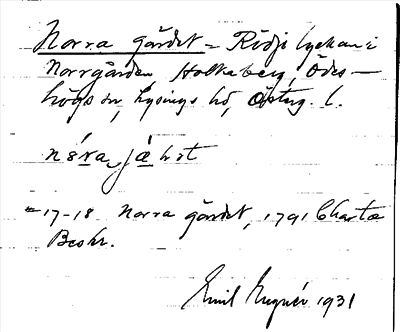 Norra gärdet = Rödje lyckan i
Norrgården, Holkaberg, Ödes-
högs sn, Lysings hd, Österg. l.
nǿra jæ̨ſt
=17-18 Norra gärdet, 1791 Charta
Beskr.
Emil 1931